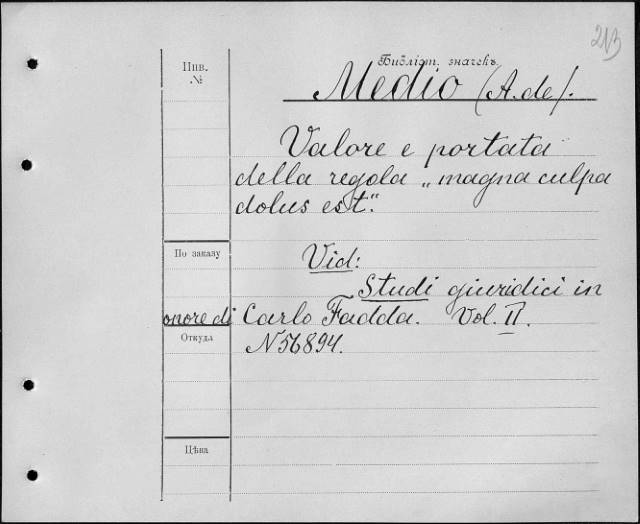 213
Инв.
№
Библіот. значекъ
Medio (A. de).
Valore e portata
della regola „magna culpa
dolus est".
По заказу
Vid:
Studi giuridici in
onore di Carlo Fadda. Vol. II.
Откуда
N 56894.
Цѣна